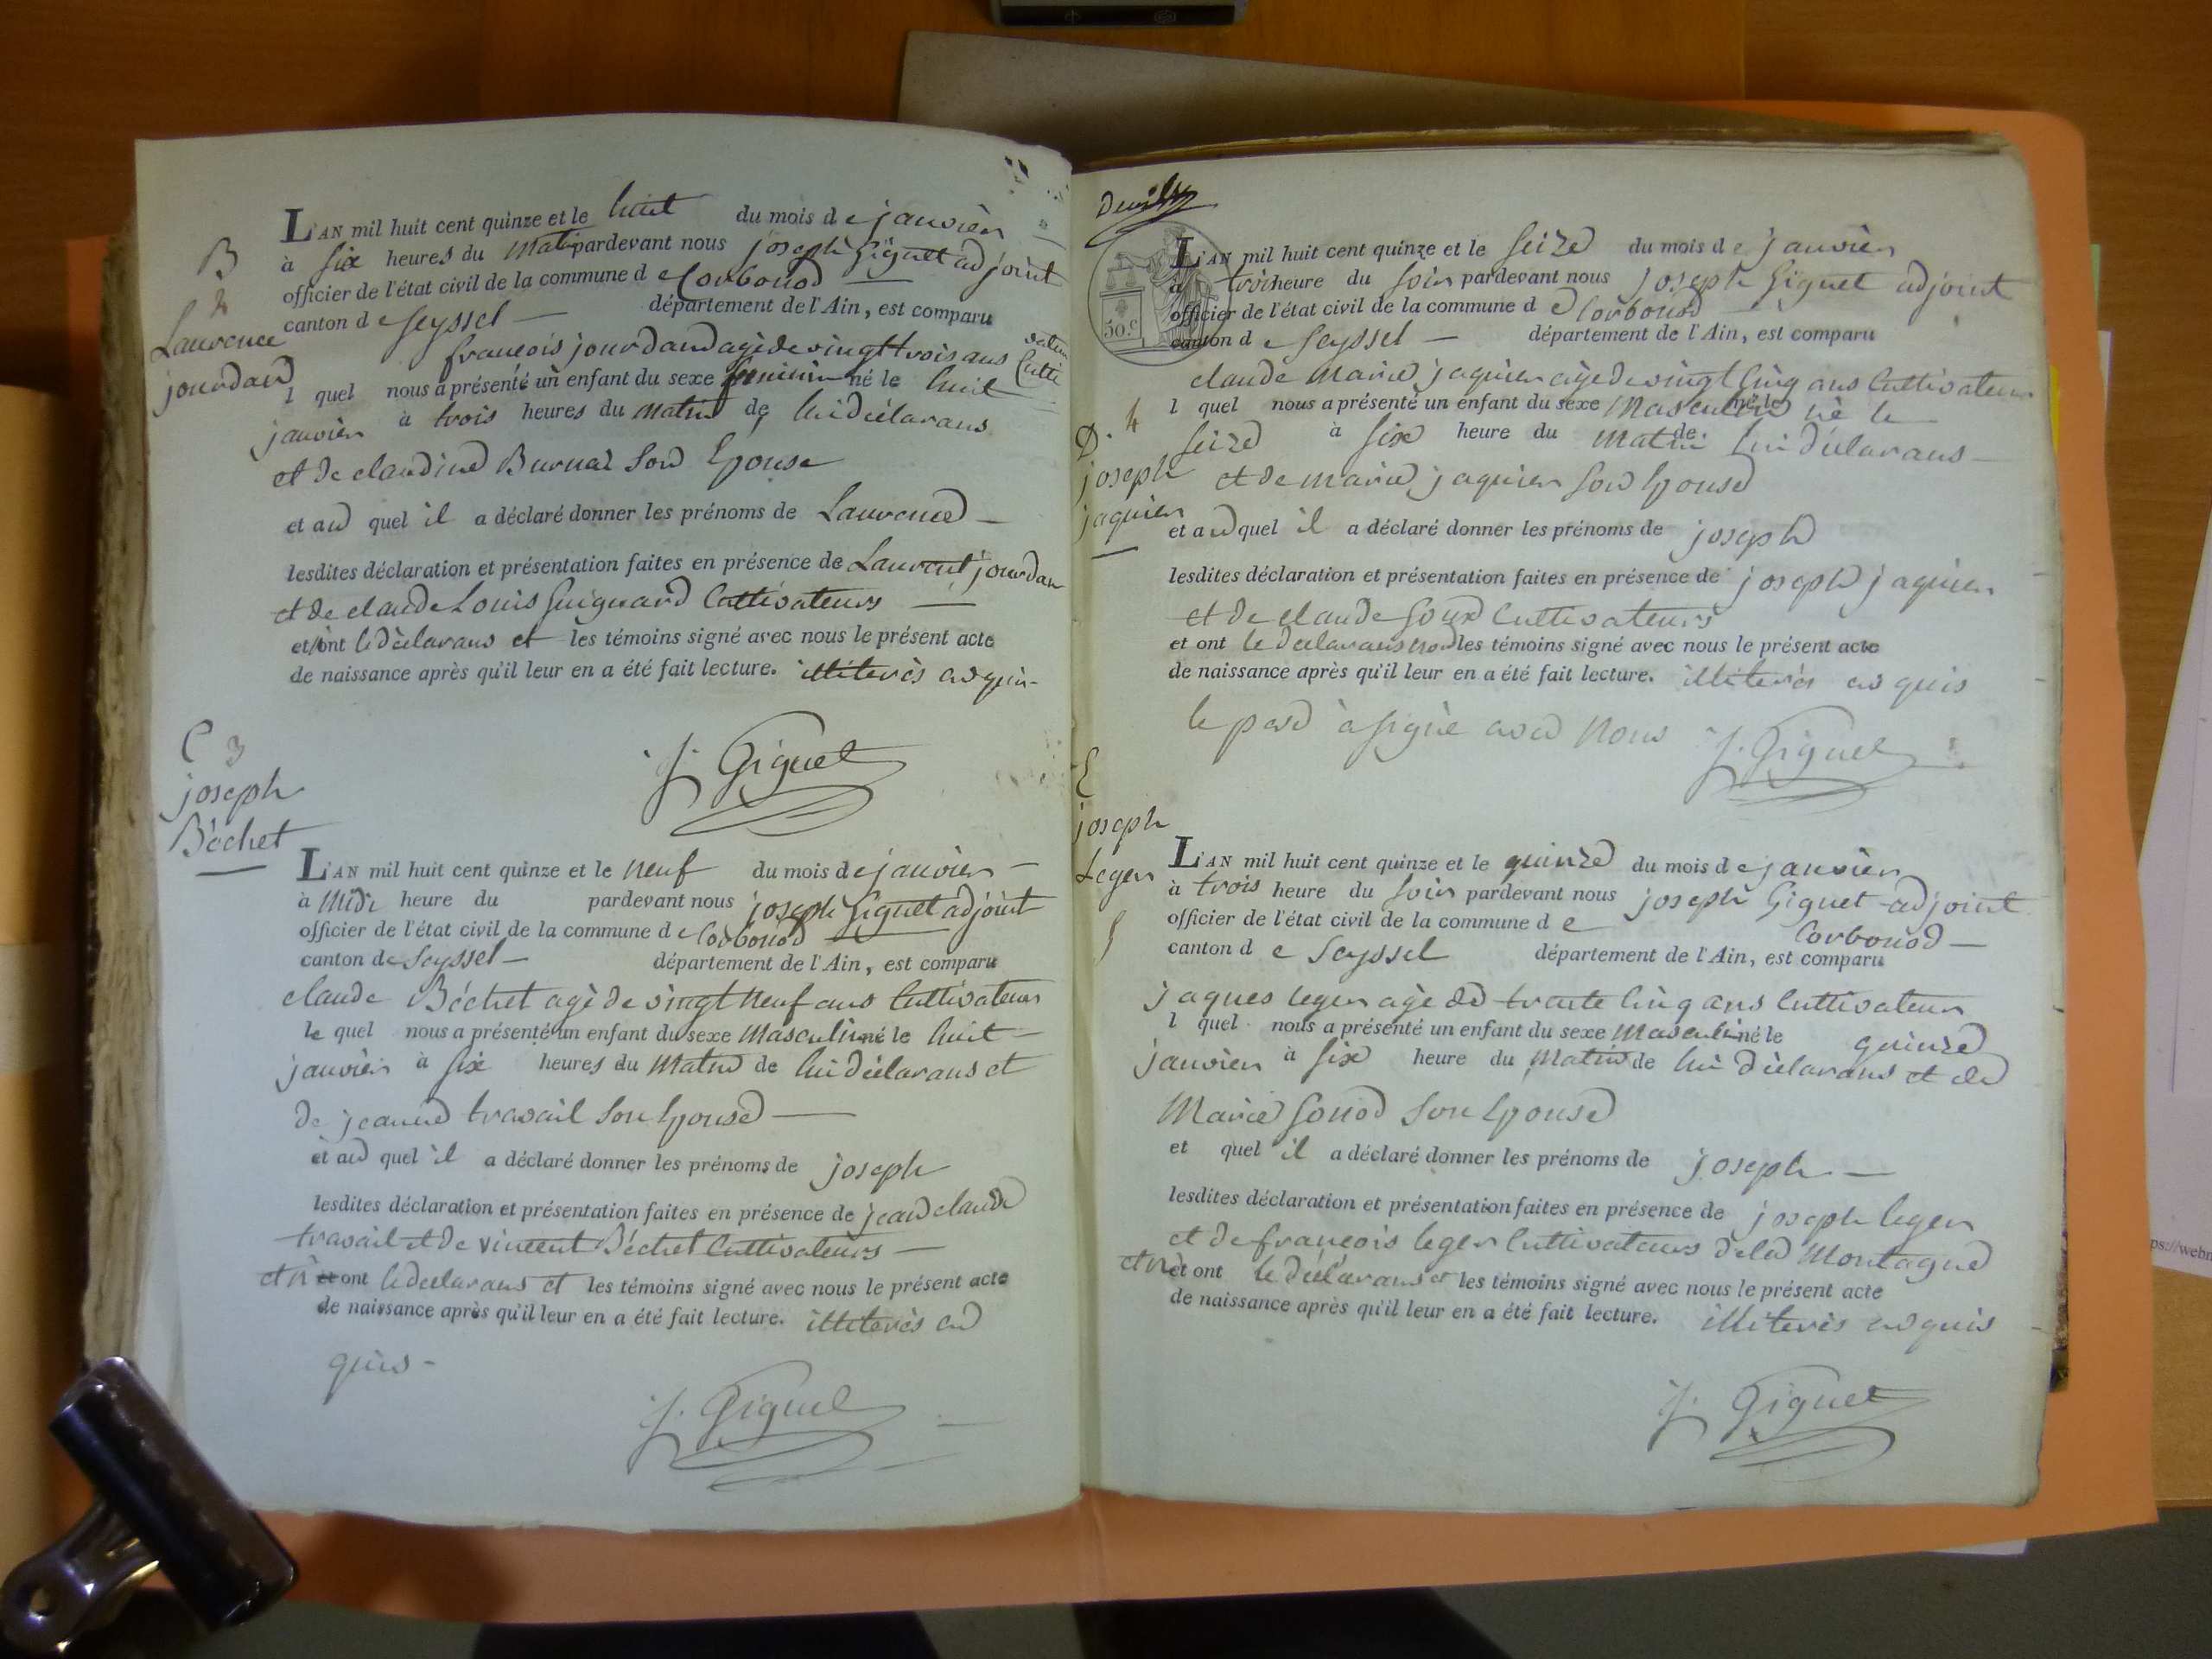 B
2
Laurence
jourdand
L'AN mil huit cent quinze et le huit du mois de janvier
à six heures du matin pardevant nous joseph Giguet adjoint
officier de l'état civil de la commune de Corbonod
canton de Seyssel — département de l'Ain, est comparu
françois jourdand agè de vingt trois ans Culti
vateur
l quel nous a présenté un enfant du sexe feminin né le huit
janvier à trois heures du matin de lui dèclarans
et de claudine Burnaz son Epouse
et au quel il a déclaré donner les prénoms de Laurence —
lesdites déclaration et présentation faites en présence de Laurent jourdan
et de claude Louis Guignard Cultivateurs —
et ont le dèclarans et les témoins signé avec nous le présent acte
de naissance après qu'il leur en a été fait lecture. illiterès enquis-
J. Giguet
C 3
joseph
Béchet
L'AN mil huit cent quinze et le neuf du mois de janvier —
à midi heure du pardevant nous joseph Giguet adjoint
officier de l'état civil de la commune de Corbonod
canton de Seyssel — département de l'Ain, est comparu
claude Béchet agè de vingt neuf ans Cultivateur
le quel nous a présenté un enfant du sexe masculin né le huit —
janvier à six heures du matin de lui dèclarans et
de jeanne travail son Epouse —
et au quel il a déclaré donner les prénoms de joseph
lesdites déclaration et présentation faites en présence de jean claude
travail et de vincent Béchet Cultivateurs —
et n'ont le dèclarans et les témoins signé avec nous le présent acte
de naissance après qu'il leur en a été fait lecture. illiterès en
quis -
J. Giguet
50.c
D. 4
joseph
jaquier
L'AN mil huit cent quinze et le seize du mois de janvier
à trois heure du soir pardevant nous joseph Giguet adjoint
officier de l'état civil de la commune de Corbonod
canton de Seyssel — département de l'Ain, est comparu
claude marie jaquier agè de vingt cinq ans Cultivateur
l quel nous a présenté un enfant du sexe masculin né le nè le
seize à six heure du matin de lui dèclarans —
et de marie jaquier son Epouse
et au quel il a déclaré donner les prénoms de joseph
lesdites déclaration et présentation faites en présence de joseph jaquier
et de claude Cultivateurs
et ont le dèclarans non les témoins signé avec nous le présent acte
de naissance après qu'il leur en a été fait lecture. illiterès enquis
le perè à signè avec nous J. Giguet
E
joseph
Leger
5
L'AN mil huit cent quinze et le quinze du mois de janvier
à trois heure du soir pardevant nous joseph Giguet adjoint
officier de l'état civil de la commune de Corbonod —
canton de Seyssel département de l'Ain, est comparu
jaques leger agè de trente cinq ans Cultivateur
l quel nous a présenté un enfant du sexe masculin né le quinze
janvier à six heure du matin de lui dèclarans et de
Marie Gonod son Epouse
et quel il a déclaré donner les prénoms de joseph —
lesdites déclaration et présentation faites en présence de joseph leger
et de françois leger Cultivateurs dela Montagne
et n'ont le dèclarans et les témoins signé avec nous le présent acte
de naissance après qu'il leur en a été fait lecture. illiterès enquis
J. Giguet